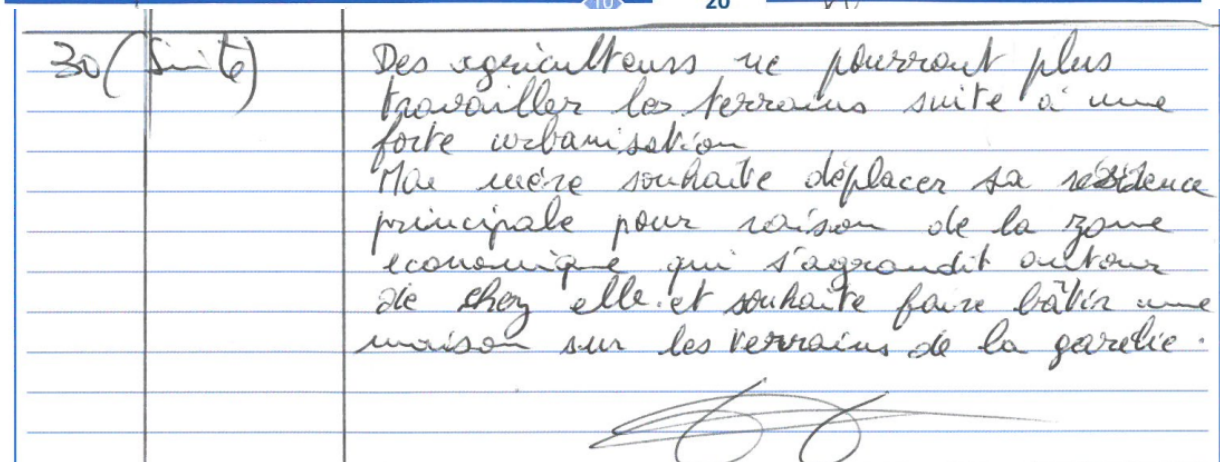 10 20
30 (suite)
Des agriculteurs ne pourront plus
travailler les terrains suite à une
forte urbanisation
Ma mère souhaite déplacer sa résidence
principale pour raison de la zone
economique qui s'agrandit autour
de chez elle et souhaite faire bâtir une
maison sur les terrains de la garelie.